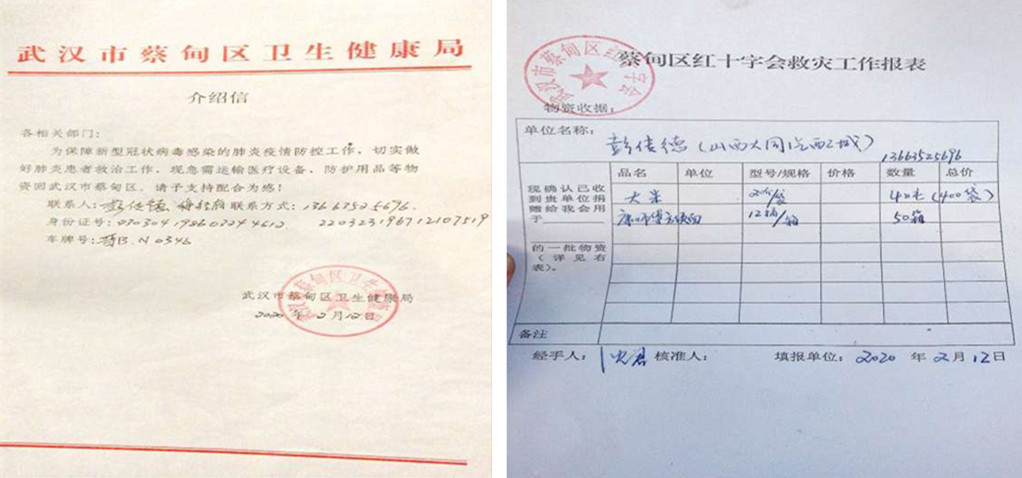 武汉市蔡甸区卫生健康局
介绍信
各相关部门：
为保障新型冠状病毒感染的肺炎疫情防控工作、切实做
好肺炎患者救治工作、现急需运输医疗设备、防护用品等物
资回武汉市蔡甸区、请予支持配合为感！
联系人： 联系方式：13663525696.
身份证号：
车牌号：晋B.N0346
武汉市蔡甸区卫生健康局
2020年2月12日
蔡甸区红十字会救灾工作报表
物资收据：
单位名称：彭信德（山西大同汽配城）
13663525696
现确认已收到贵单位捐赠给我会用于
的一批物资（详见右表）。
品名 单位 型号/规格 价格 数量 总价
大米 /袋 (400袋)
/箱 50箱
备注
经手人： 核准人： 填报单位：2020年2月12日